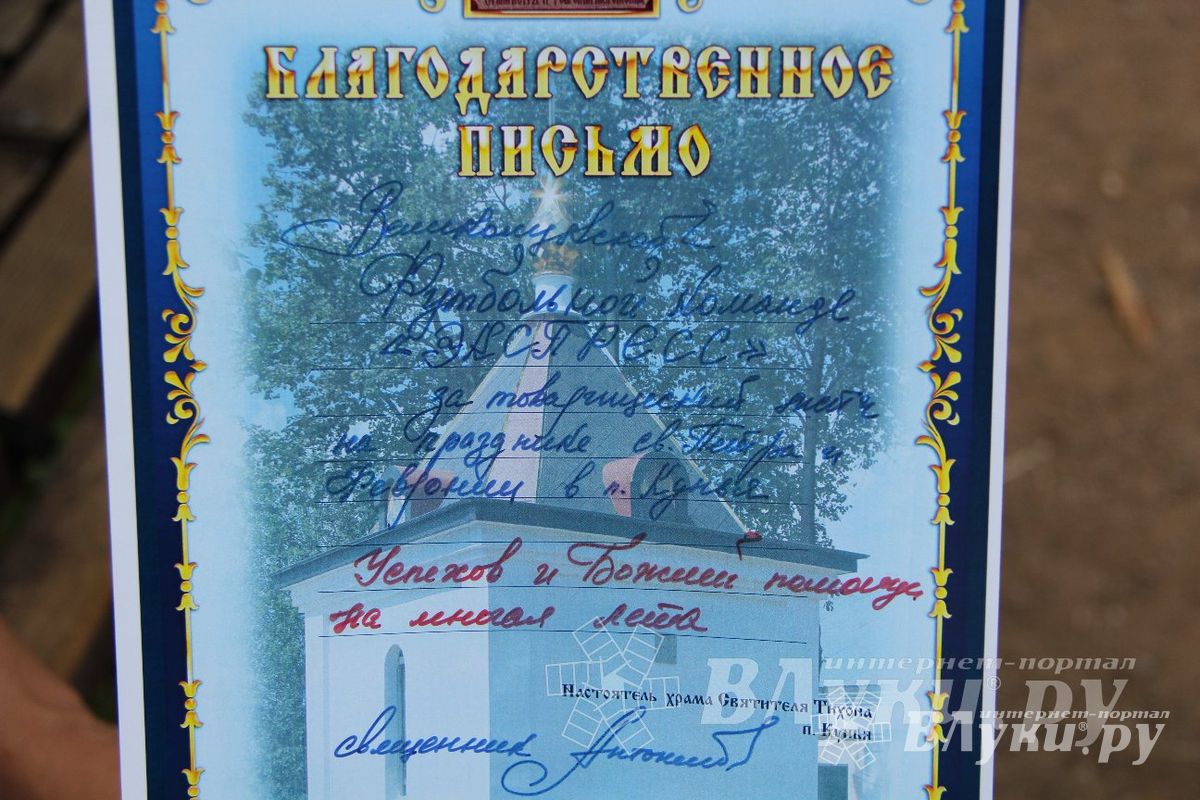 БЛАГОДАРСТВЕННОЕ
ПИСЬМО
Великолукской
Футбольной команде
"ЭКСПРЕСС"
за товарищеский матч
на празднике св. Петра и
Февронии в п. Кунья
Успехов и Божией помощи
на многая лета
Настоятель храма Святителя Тихона
п. Кунья
священник Антоний
интернет-портал
ВЛУКИ.РУ
интернет-портал
ВЛУКИ.РУ